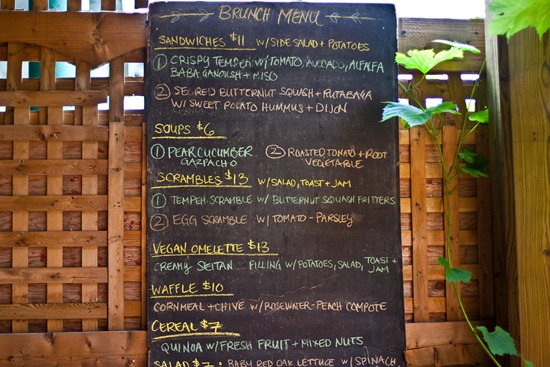 BRUNCH MENU
SANDWICHES $11 W/SIDE SALAD + POTATOES
① CRISPY TEMPEH W/ TOMATO, AVOCADO, ALFALFA
BABA GANOUSH + MISO
② SEARED BUTTERNUT SQUASH + RUTABAGA
W/ SWEET POTATO HUMMUS + DIJON
SOUPS $6
① PEAR CUCUMBER GAZPACHO
② ROASTED TOMATO + ROOT VEGETABLE
SCRAMBLES $13 W/SALAD, TOAST + JAM
① TEMPEH SCRAMBLE W/ BUTTERNUT SQUASH FRITTERS
② EGG SCRAMBLE W/ TOMATO - PARSLEY
VEGAN OMELETTE $13
CREAMY SEITAN FILLING W/POTATOES, SALAD, TOAST + JAM
WAFFLE $10
CORNMEAL + CHIVE W/ROSEWATER-PEACH COMPOTE
CEREAL $7
QUINOA W/FRESH FRUIT + MIXED NUTS
SALAD $7 • BABY RED OAK LETTUCE W/ SPINACH,